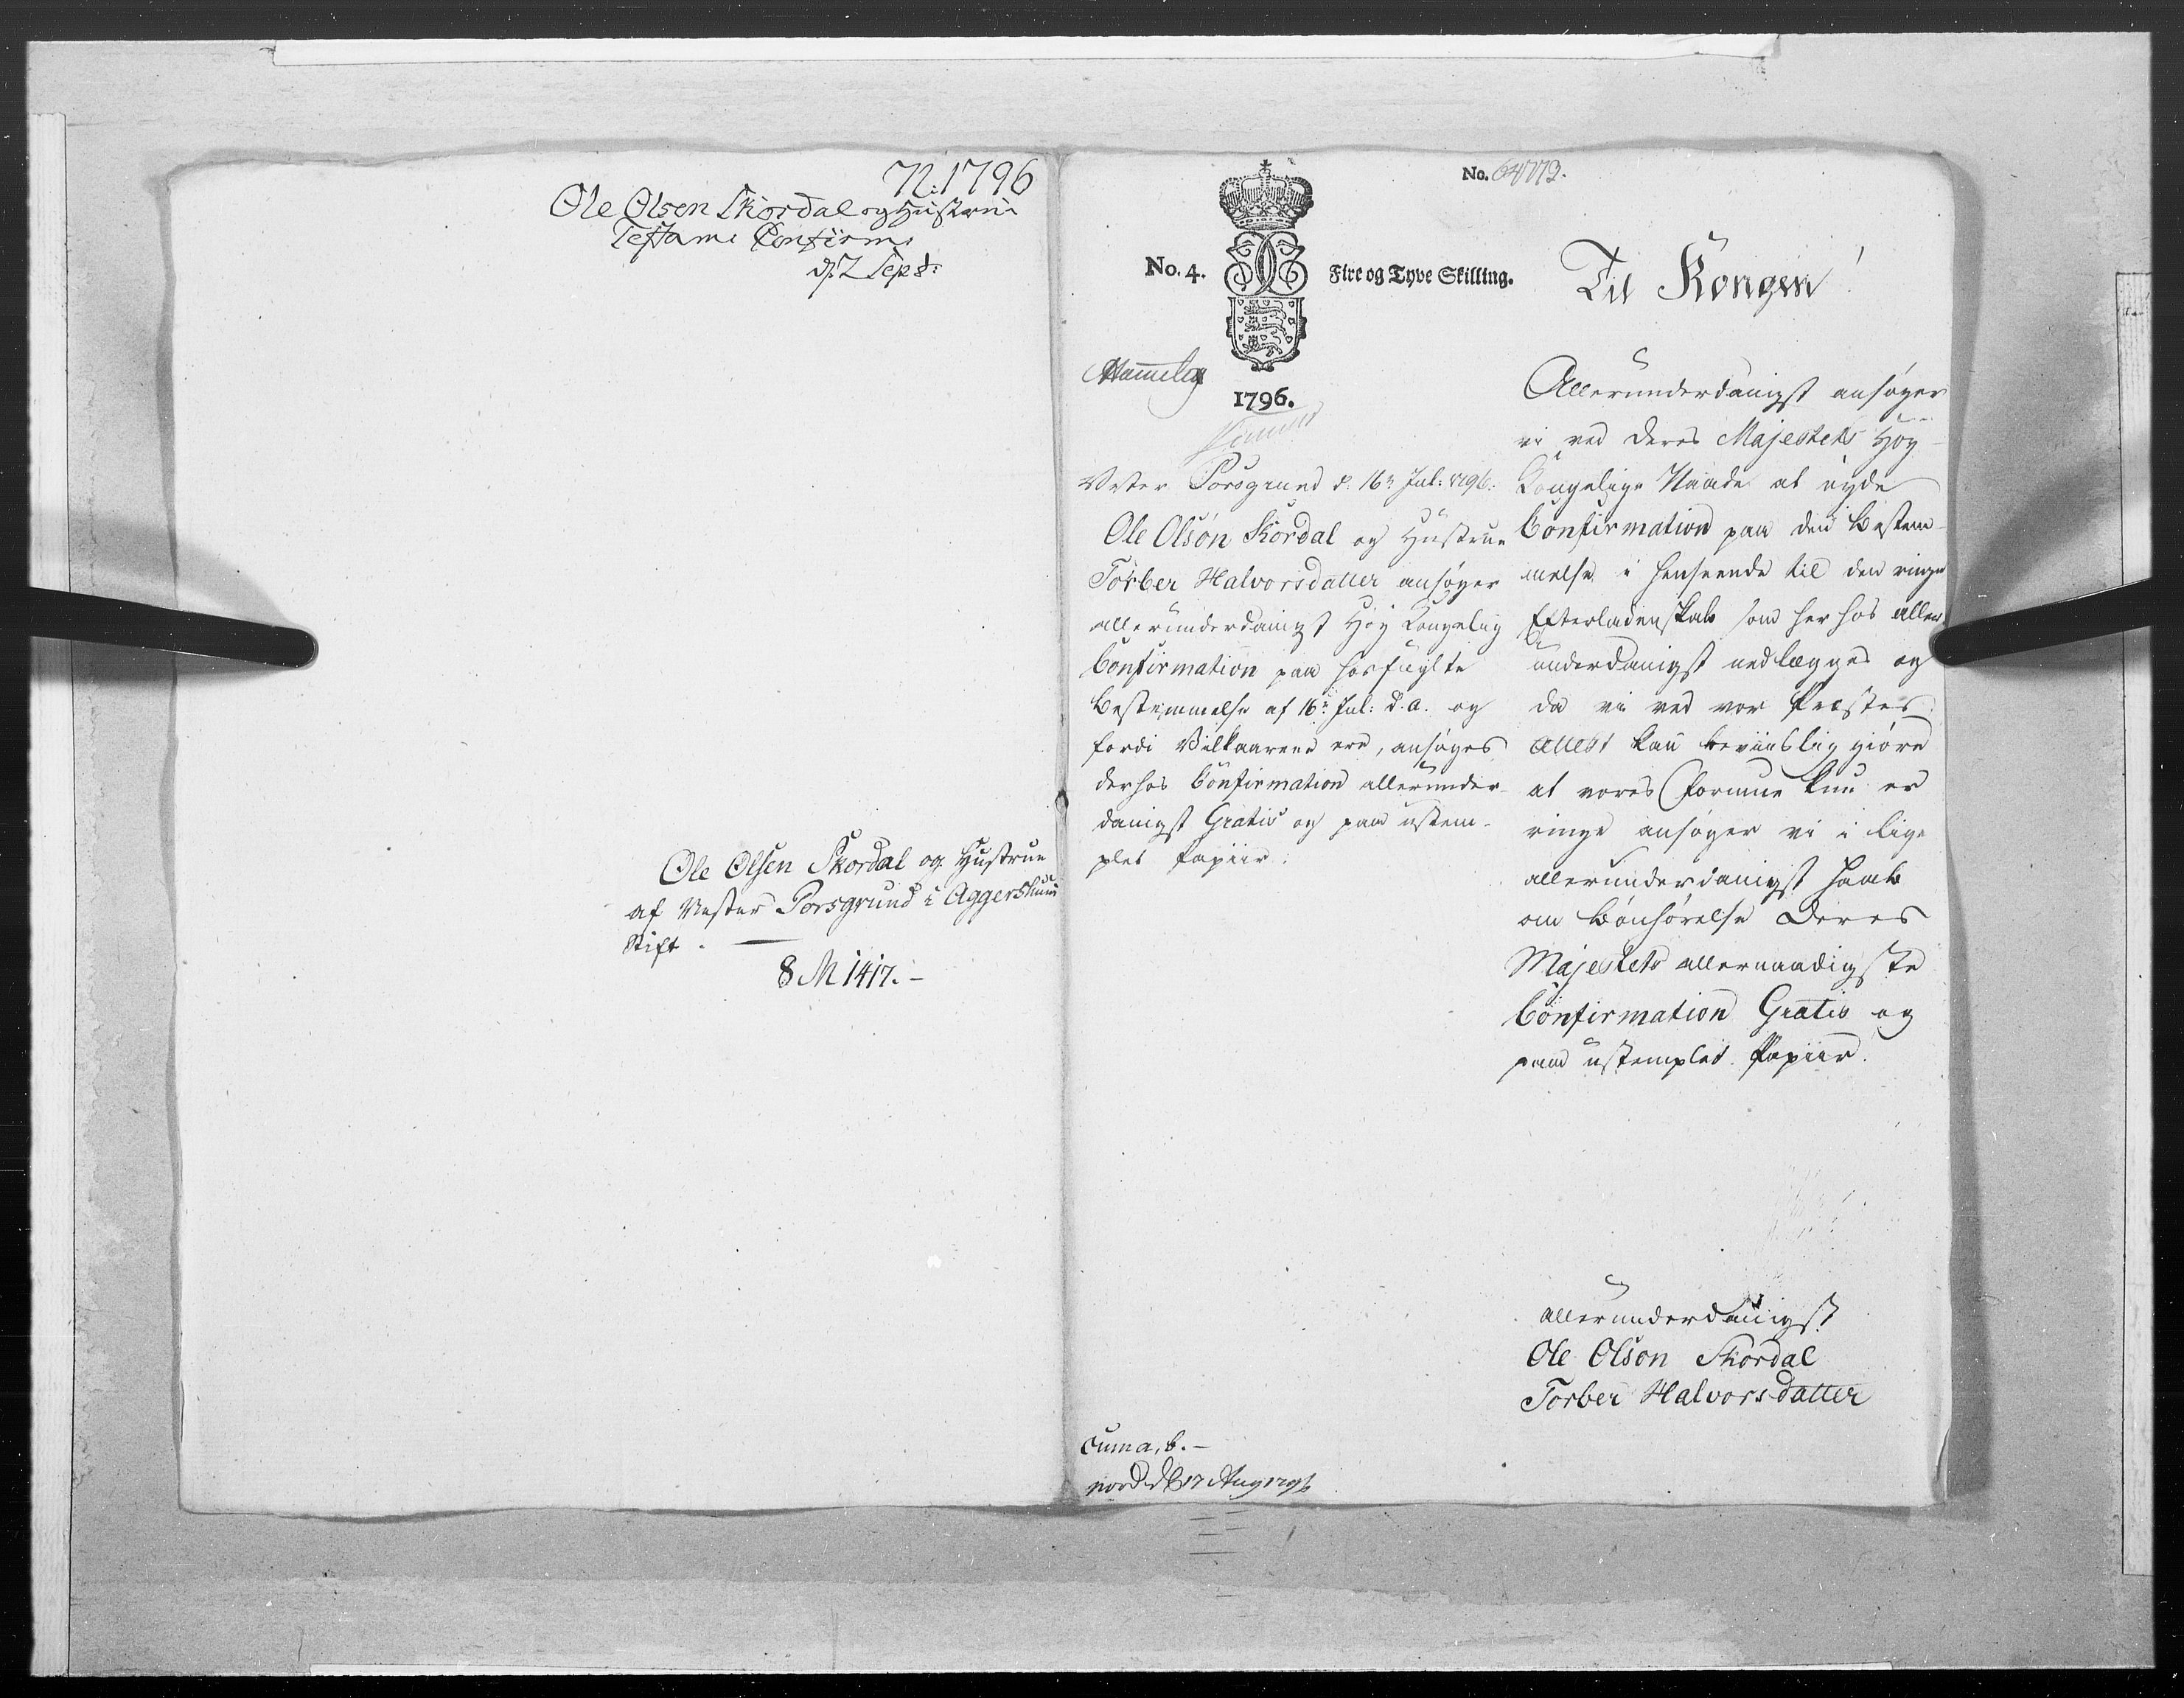 N: 1796
Ole Olsen Skordal og Hustrue
Testam: Confirm:
d: 2 Sept:
Ole Olsen Skordal og Hustrue
af Vester Porsgrund i Aggershuus
Stift. —
8 M 1417. –
No. 64773.
No. 4.
Fire og Tyve Skilling.
1796.
Vester Porsgrund d: 16de Jul: 1796.
Ole Olsøn Skordal og Hustrue
Torber Halvorsdatter ansøger
allerunderdanigst Høy Kongelig
Confirmation paa hosføyede
Bestemmelse af 16de Jul: d. a. og
fordi Vilkaarene ere, ansøges
derhos Confirmation allerunder-
danigst Gratis og paa ustem-
plet Papiir.
Til Kongen!
Allerunderdanigst ansøger
vi ved Deres Majestets Høy-
Kongelige Naade at nyde
Confirmation paa den Bestem-
melse i Henseende til den ringe
Efterladenskab som her hos aller-
underdanigst nedlægges og
da vi ved vor Præstes
Attest kan beviislig giøre
at vores Formue kun er
ringe ansøger vi i lige
allerunderdanigst Haab
om Bønhørelse Deres
Majestets allernaadigste
Confirmation Gratis og
paa ustemplet Papiir.
allerunderdanigst
Ole Olsøn Skordal
Torber Halvorsdatter
cum a, b. –
17 Aug 1796